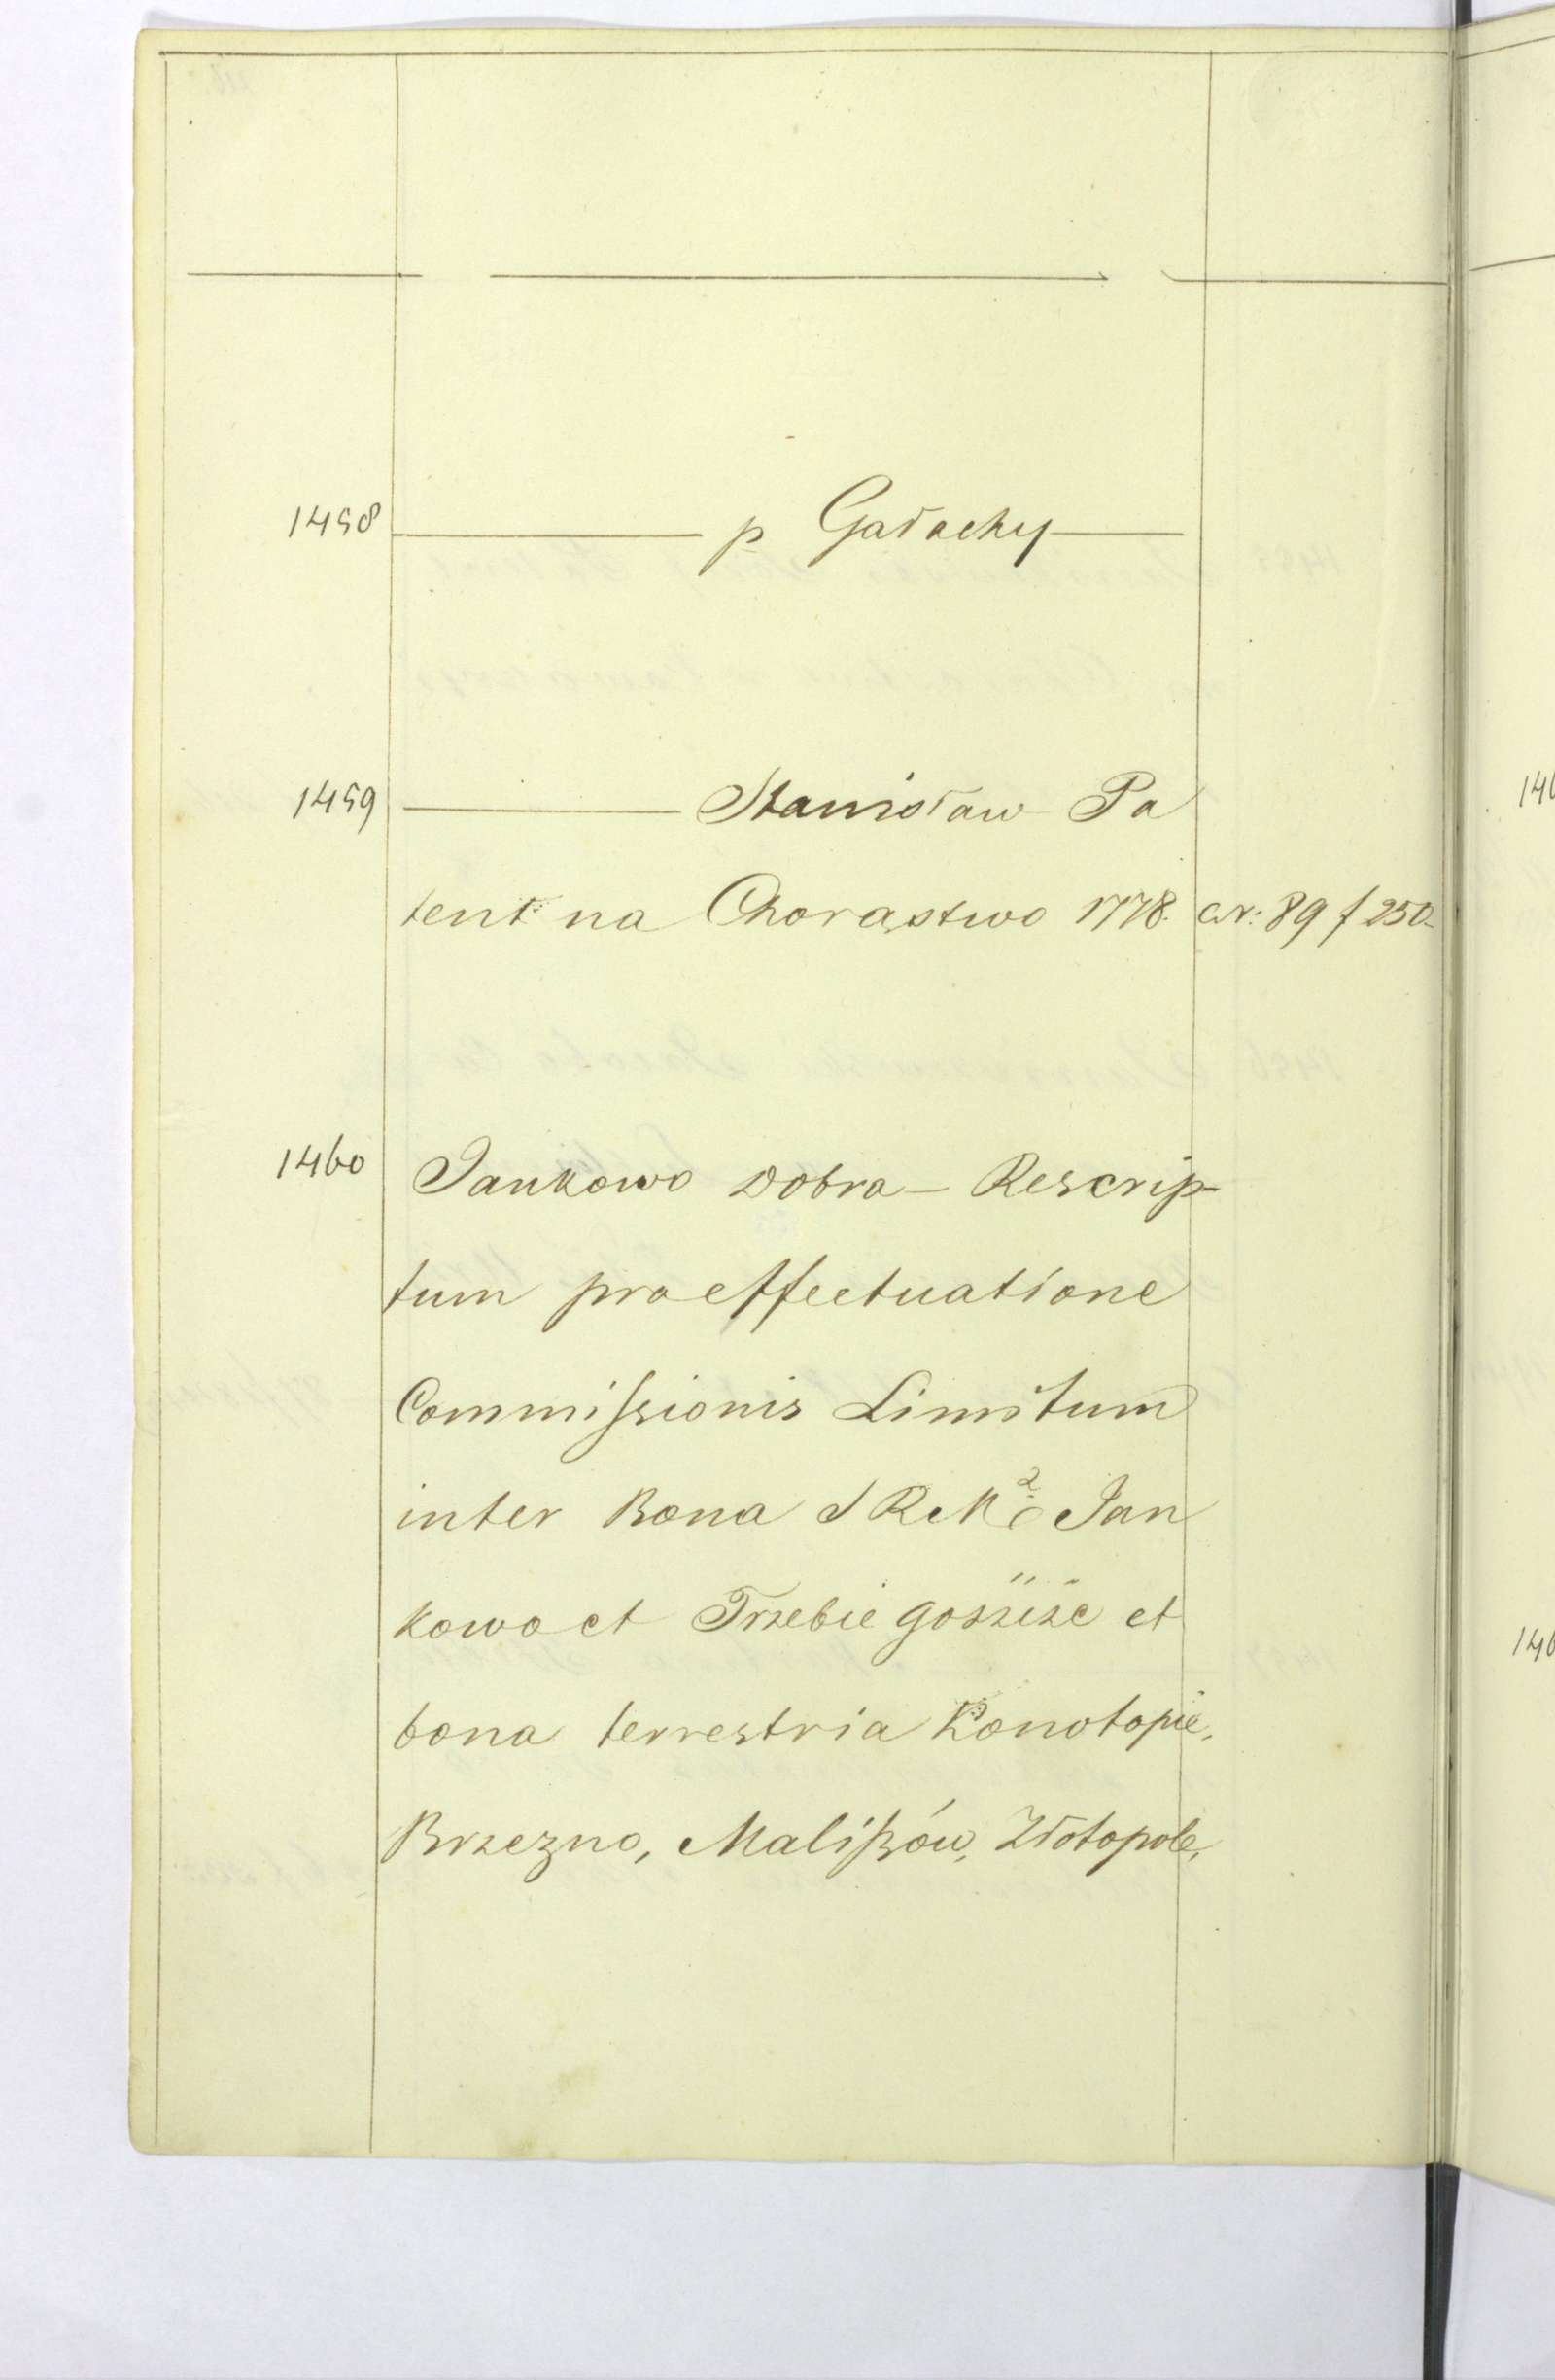 1458 ——— p Gałachy ———
1459 ——— Stanisław Pa
tent na Chorąstwo 1778. N: 89 f 250
1460 Jankowo Dobra — Rescrip-
tum pro effectuatione
Commissionis Limitum
inter Bona S R M Jan
kowo et Trzebiegoszcze et
bona terrestria Konotopie,
Brzezno, Maliszów, Złotopole,